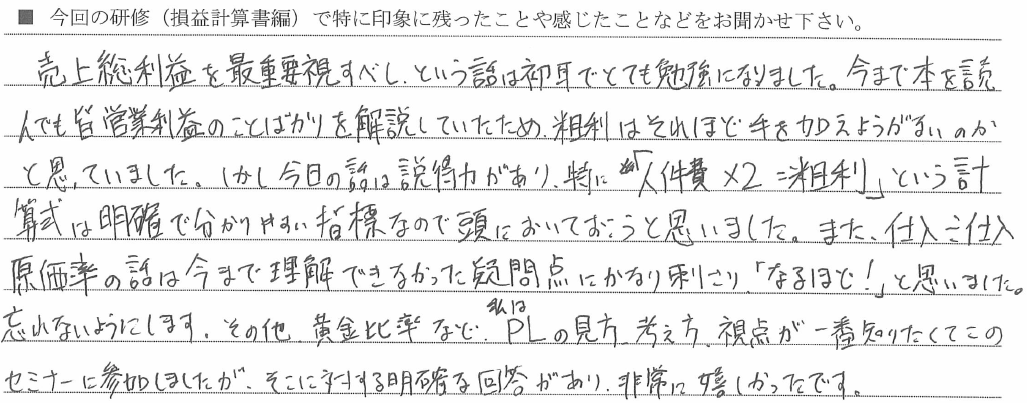 ■ 今回の研修（損益計算書編）で特に印象に残ったことや感じたことなどをお聞かせ下さい。
売上総利益を最重要視すべし、という話は初耳でとても勉強になりました。今まで本を読
んでも皆営業利益のことばかりを解説していたため、粗利はそれほど手を加えようがないのか
と思っていました。しかし今日の話は説得力があり、特に「人件費×2=粗利」という計
算式は明確で分かりやすい指標なので頭においておこうと思いました。また、仕入≒仕入
原価率の話は今まで理解できなかった疑問点にかなり刺さり、「なるほど！」と思いました。
忘れないようにします。その他、黄金比率など、私はPLの見方、考え方、視点が一番知りたくてこの
セミナーに参加しましたが、そこに対する明確な回答があり、非常に嬉しかったです。